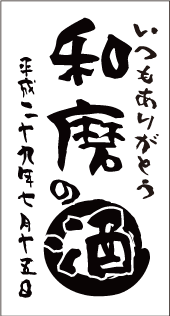 いつもありがとう
和磨の酒
平成二十九年七月十五日